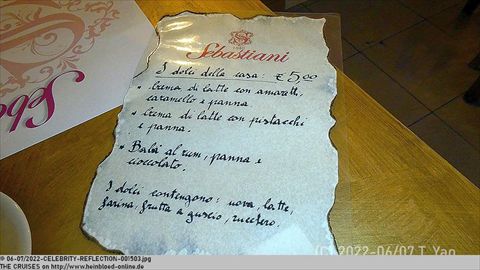 Sebastiani
I dolci della casa: € 5,00
* Crema di latte con amaretti,
caramello e panna
* Crema di latte con pistacchi
e panna.
* Babà al rum, panna e
cioccolato.
I dolci contengono: uova, latte,
farina, frutta a guscio, zucchero.
Seba
(C) 2022-06/07 T. Yao
© 06-07/2022-CELEBRITY-REFLECTION-001503.jpg
THE CRUISES on http://www.heinbloed-online.de